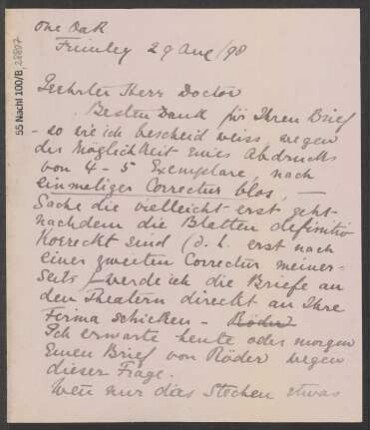 One Oak
Frimley 29 Aug/98
55 Nachl 100/B, 28897
Geehrter Herr Doctor
Besten Dank für Ihren Brief
- so wie ich bescheid weiss wegen
der Möglichkeit eines Abdrucks
von 4 - 5 Exemplare, nach
einmaliger Correctur blos, —
Sache die vielleicht erst geht
nachdem die Platten definitiv
Korrekt sind (d. h. erst nach
einer zweiten Correctur meiner-
seits) werde ich die Briefe an
den Theatern direct an Ihre
Firma schicken - Röder
Ich erwarte heute oder morgen
Einen Brief von Röder wegen
dieser Frage.
Wenn nur das Stechen etwas